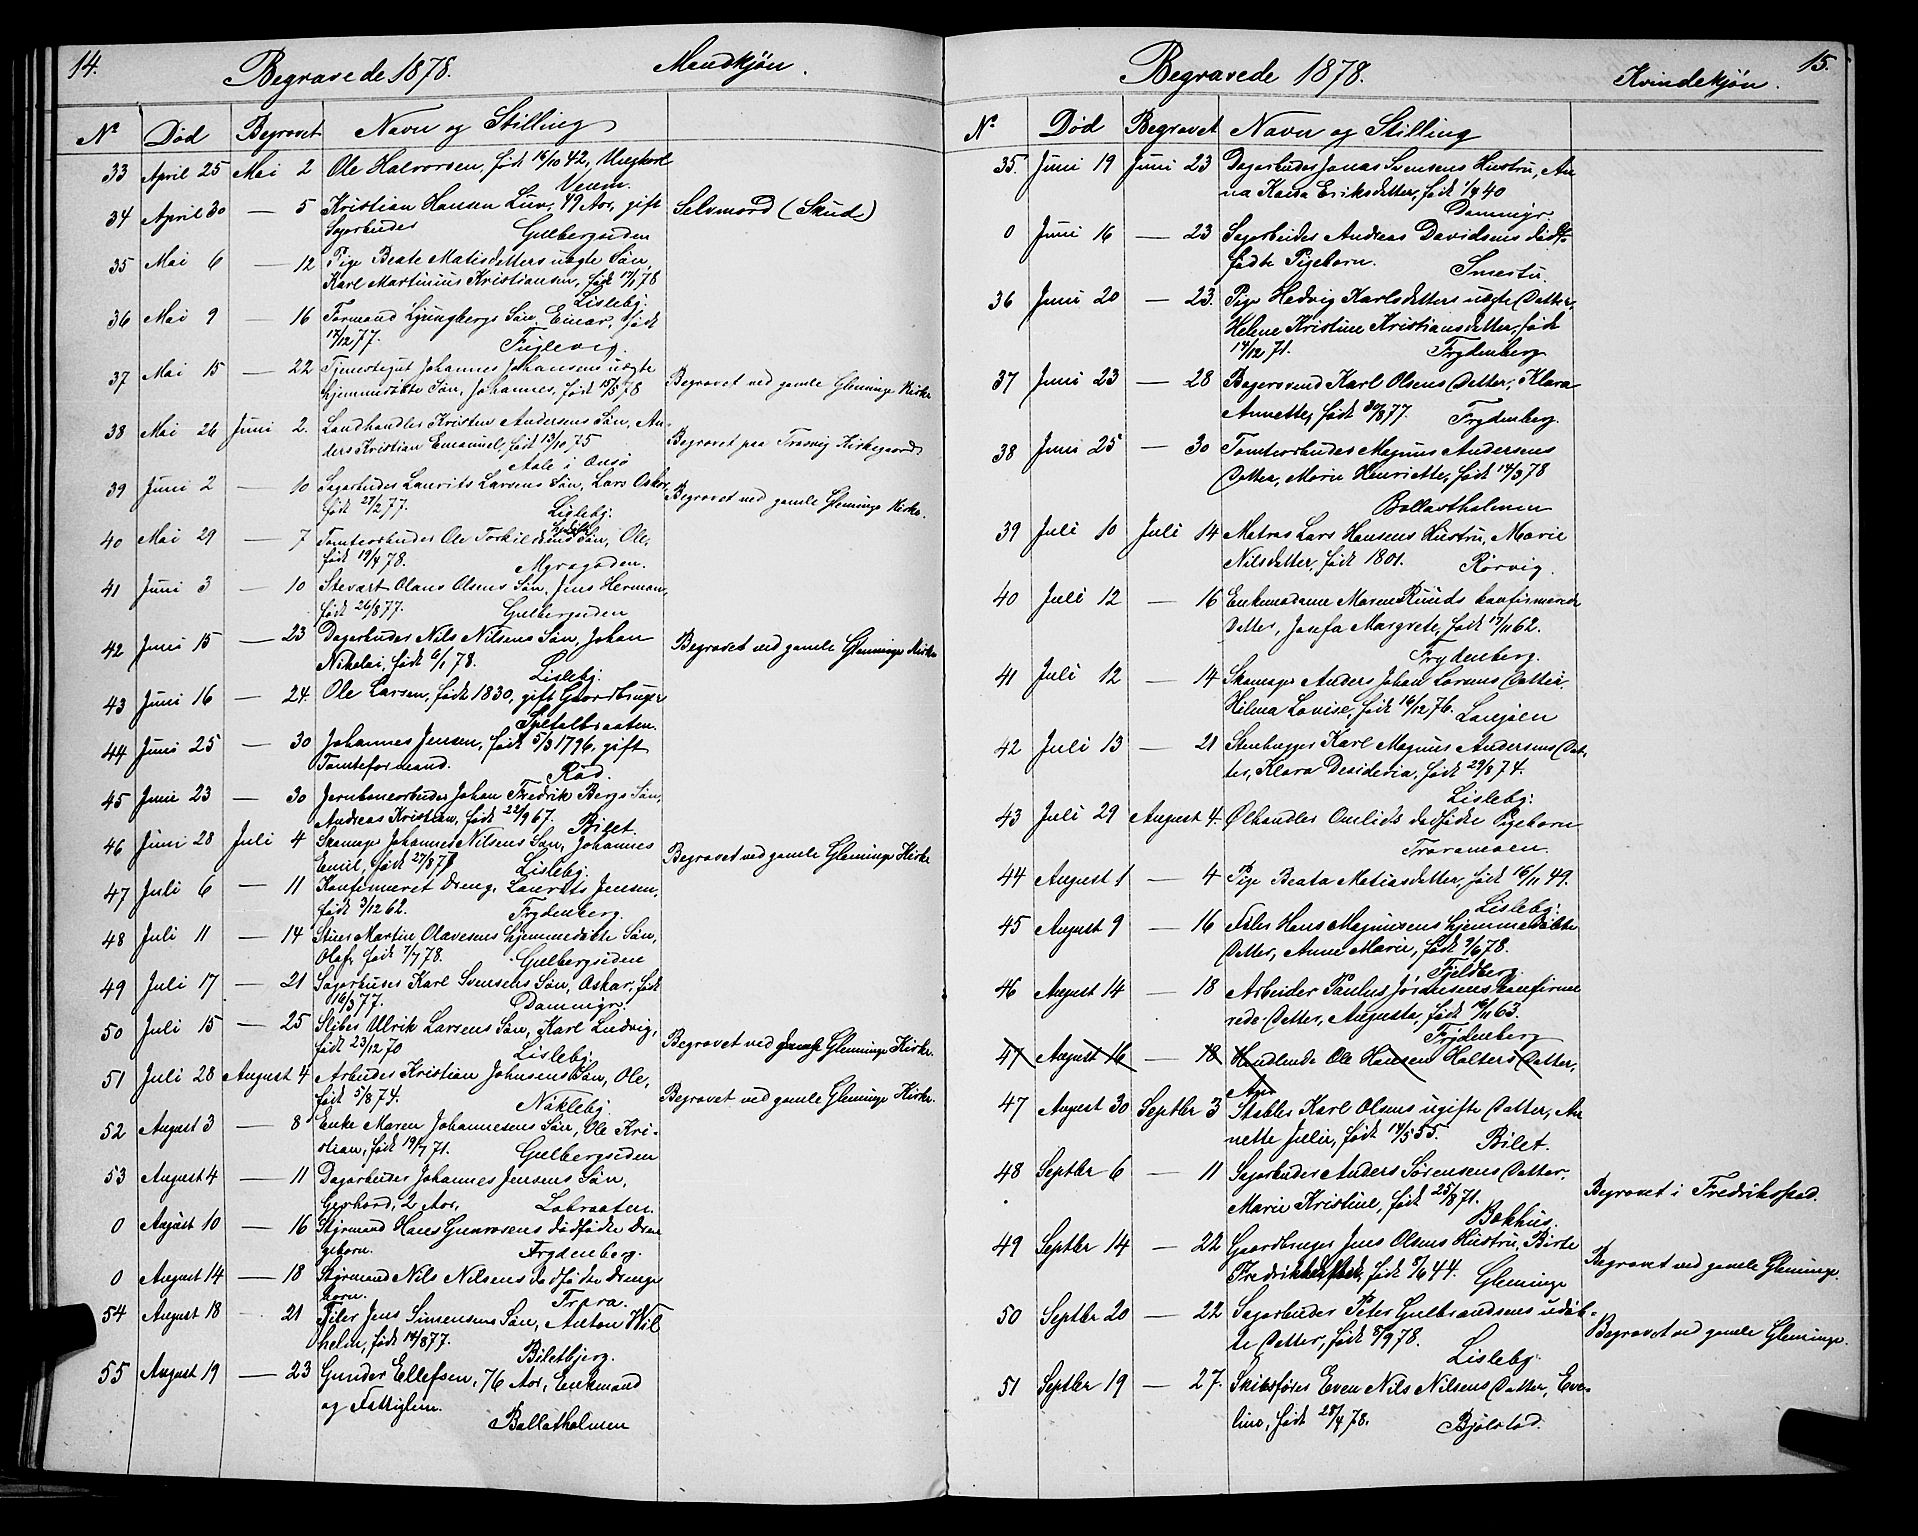 14.
Begravede 1878. Mandkjøn.
No Død Begravet Navn og Stilling
33 April 25 Mai 2 Ole Halvorsen, født 16/10 42, Ungkarl
Veum.
34 April 30 — 5 Kristian Hansen Lux, 49 Aar, gift Selvmord (Skud)
Sagarbeider Gulbergsiden
35 Mai 6 — 12 Pige Beate Matisdatters uægte Søn,
Karl Martinius Kristiansen, født 17/1 78
Lisleby.
36 Mai 9 — 16 Formand Ljungbergs Søn, Einar, født
17/12 77. Fuglevig.
37 Mai 15 — 22 Tjenestegut Johannes Johansens uægte
hjemmedøbte Søn, Johannes, født 15/5 78 Begravet ved gamle Glemminge Kirke
38 Mai 26 Juni 2. Landhandler Kristen Andersens Søn, An-
ders Kristian Emanuel, født 13/10 75 Begravet paa Trosvig Kirkegaard
Aale i Onsø
39 Juni 2 — 10 Sagarbeider Laurits Larsens Søn, Lars Oskar,
født 27/2 77. Lisleby. Begravet ved gamle Glemminge Kirke.
40 Mai 29 — 7 Tomtearbeider Ole Torkildsens hjdøbte Søn, Ole,
født 19/4 78. Myragaden.
41 Juni 3 — 10 Stevart Olaus Olsens Søn, Jens Herman,
født 26/8 77. Gulbergsiden
42 Juni 15 — 23 Dagarbeider Nils Nilsens Søn, Johan
Nikolai, født 6/1 78. Lisleby. Begravet ved gamle Glemminge Kirke
43 Juni 16 — 24. Ole Larsen, født 1830, gift Gaardbruger
Spetalbraaten.
44 Juni 25 — 30 Johannes Jensen, født 5/3 1796, gift
Tomteformand. Rød.
45 Juni 23 — 30 Jernbanearbeider Johan Fredrik Bergs Søn,
Andreas Kristian, født 22/9 67. Bilet.
46 Juni 28 Juli 4 Skomager Johannes Nilsens Søn, Johannes
Emil, født 27/8 77 Lisleby. Begravet ved gamle Glemminge Kirke
47 Juli 6 — 11 Konfirmeret Dreng, Laurits Jensen,
født 3/12 62. Frydenberg.
48 Juli 11 — 14 Stuer Martin Olavesens hjemmedøbte Søn,
Olaf, født 7/7 78. Gulbergsiden
49 Juli 17 — 21 Sagarbeider Karl Svensens Søn, Oskar, født
16/3 77. Dammyr.
50 Juli 15 — 25 Sliber Ulrik Larsens Søn, Karl Ludvig,
født 23/12 70 Lisleby. Begravet ved gamle Glemminge Kirke.
51 Juli 28 August 4 Arbeider Kristian Johnsens Søn, Ole,
født 5/8 74. Nökleby. Begravet ved gamle Glemminge Kirke.
52 August 3 — 8 Enke Maren Johannesens Søn, Ole Kri-
stian, født 19/7 71. Gulbergsiden
53 August 4 — 11 Dagarbeider Johannes Jensens Søn,
Gerhard, 2 Aar, Labraaten.
0 August 10 — 16 Styrmand Hans Gunrosens dødfødte Dren
gebarn. Frydenberg.
0 August 14 — 18 Styrmand Nils Nilsens dødfødte Drenge
barn. Trara.
54 August 18 — 21 Filer Jens Simensens Søn, Anton Wil
helm, født 14/8 77.
Biletbjerg.
55 August 19 — 23 Gunder Ellefsen, 76 Aar, Enkmand
og Fattiglem.
Ballatholmen
15.
Begravede 1878. Kvindekjøn.
No Død Begravet Navn og Stilling
35. Juni 19 Juni 23 Dagarbeider Jonas Svensens Hustru, An-
na Kaisa Eriksdatter, født 1/9 40
Dammyr.
0 Juni 16 — 23 Sagarbeider Andreas Davidsens død-
fødte Pigebarn. Smertu.
36 Juni 20 — 23. Pige Hedvig Karlsdatters uægte Datter,
Helene Kristine Kristiansdatter, født
14/12 71. Frydenberg
37 Juni 23 — 28 Bagersvend Karl Olsens Datter, Klara
Annette, født 30/8 77. Frydenberg.
38 Juni 25 — 30 Tomtearbeider Magnus Andersens
Datter, Marie Henriette, født 14/3 78
Ballastholmen
39 Juli 10 Juli 14 Matros Lars Hansens Hustru, Marie
Nilsdatter, født 1801. Rörvig.
40 Juli 12 — 16 Enkemadame Maren Ruuds konfirmerede
Datter, Josefa Margrete, født 17/11 62.
Frydenberg.
41 Juli 12 — 14 Skomager Anders Johan Larsens Datter,
Hilma Lovise, født 16/12 76.
42 Juli 13 — 21 Stenhugger Karl Magnus Andersens Dat-
ter, Klara Desideria, født 29/8 74.
Lisleby.
43 Juli 29 August 4. Ølhandler Omlids dødfødte Pigebarn
Traramoen.
44 August 1 — 4 Pige Beata Matiasdatter, født 16/11 49.
Lisleby.
45 August 9 — 16 Filer Hans Magnusens hjemmedøbte
Datter, Anne Marie, født 9/6 78.
Fjeldberg.
46 August 14 — 18 Arbeider Paulus Jørensens konfirme
rede Datter, Augusta, født 16/11 63.
Frydenberg
47 August 16 — 18 Handlende Ole Hansen Holters Datter,
Agn
47 August 30 Septbr 3 Stabler Karl Olsens ugifte Datter, An
nette Julie, født 14/5 55. Bilet.
48 Septbr 6 — 11 Sagarbeider Anders Sørensens Datter,
Marie Kristine, født 25/8 71. Begravet i Fredrikstad.
Bakhus.
49 Septbr 14 — 22 Gaardbruger Jens Olsens Hustru, Birte
Fredriksdatter, født 8/6 44. Glemminge Begravet ved gamle Glemminge.
50 Septbr 20 — 22 Sagarbeider Peter Gulbrandsens udøb-
te Datter, født 8/9 78. Begravet ved gamle Glemminge.
Lisleby.
51 Septbr 19 — 27. Skibsfører Even Nils Nilsens Datter, Eve-
line, født 28/4 78. Bjölstad.